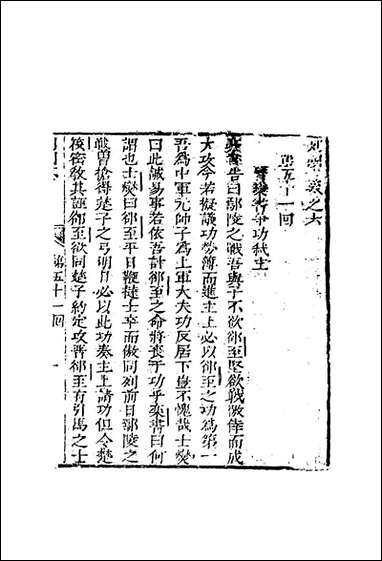 列國志之六
第五十一回
晉欒書爭功弒主
欒書告曰鄢陵之戰吾與子不欲郤至堅欲戰微倖而成
大功今若擬議功勞簿而進主上必以郤至之功為第一
吾為中軍元帥子為上軍大夫功反居下豈不愧哉士燮
曰此誠易事若依吾計郤至之命將喪于功乎欒書曰何
謂也士燮曰郤至平日鞭撻士卒而傲同列前日鄢陵之
戰曾搶得楚子之弓明日必以此功奏主上請功但令楚
發密教其誣郤至欲同楚子約定攻晉郤至有引馬之士
第五十一回
一